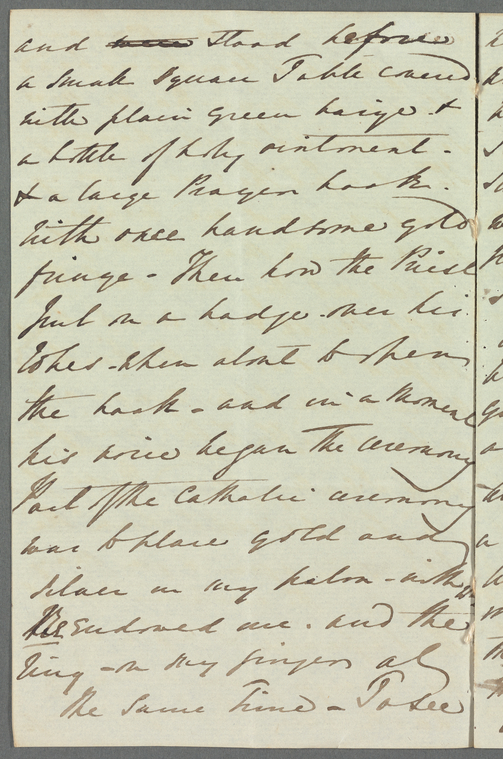 and were stood before
a small square Table covered
with plain green baize - &
a bottle of holy ointment -
& a large Prayer book -
With once handsome gold
fringe - Then how the Priest
put on a badge over his
robes - when about to open
the book - and in a moment
his voice began the ceremony
Part of the Catholic ceremony
was to place gold and
silver in my palm - with
He Endowed me - and the
ring - on my finger at
the same Time - To see